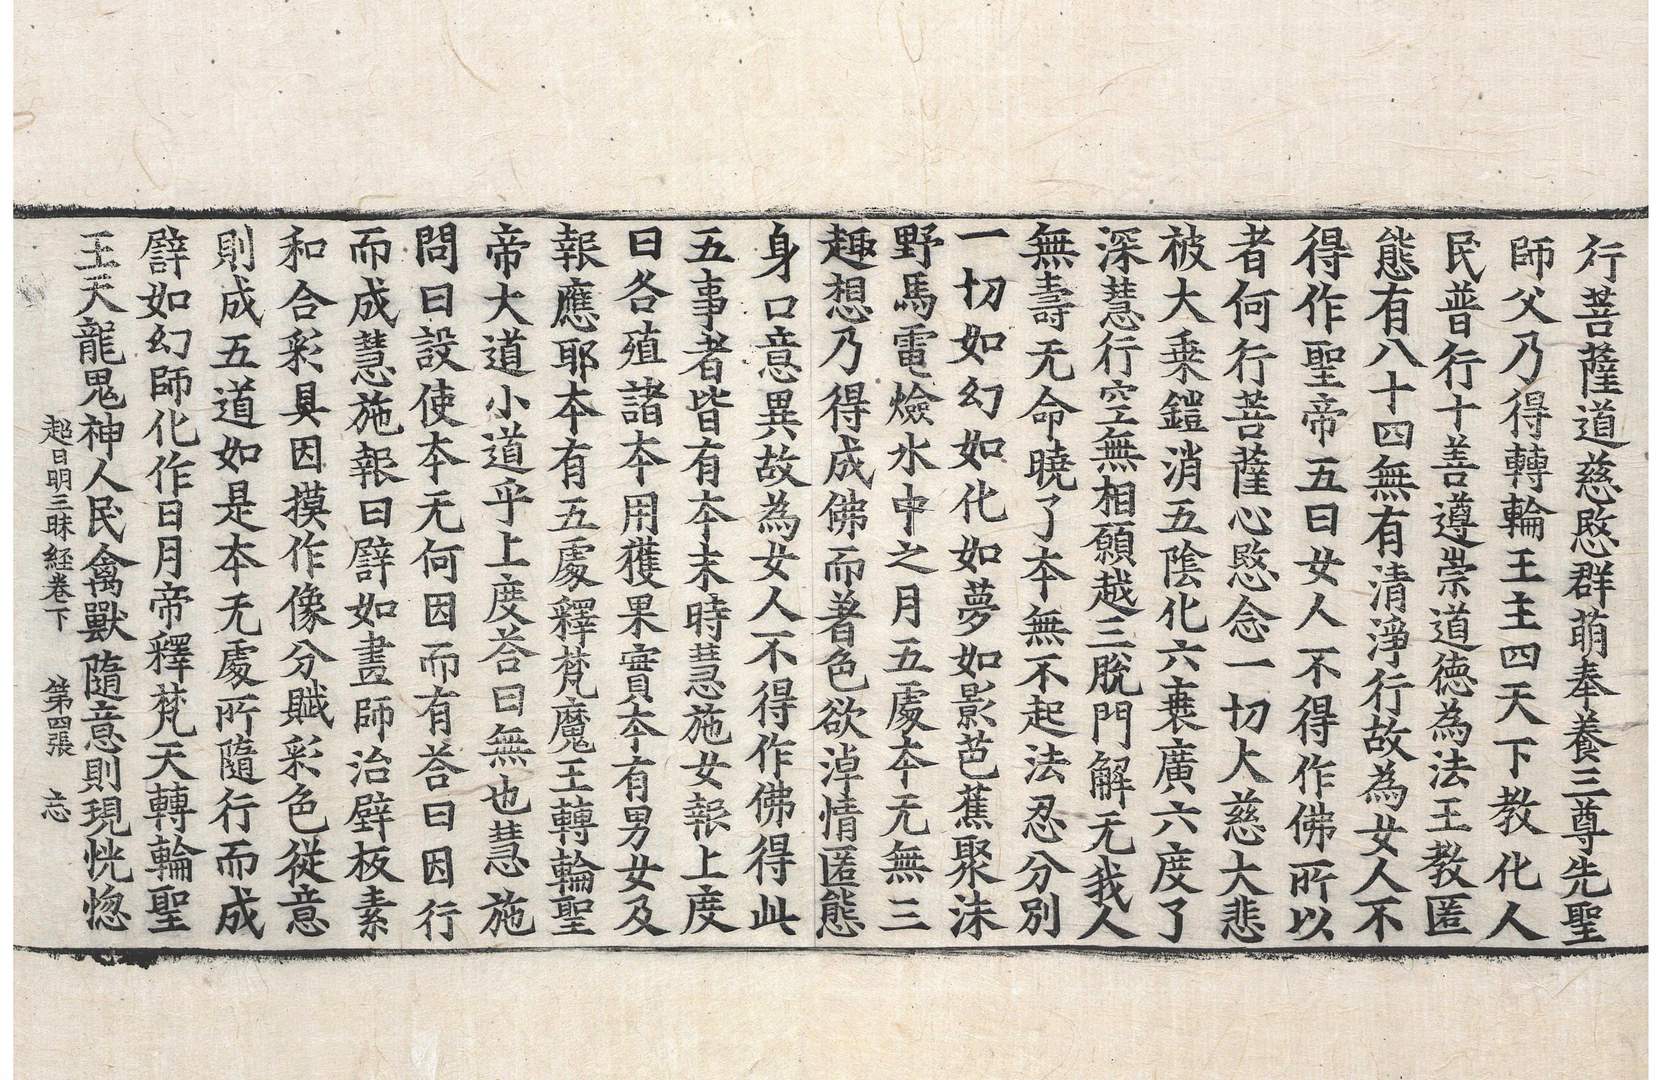 行菩薩道慈愍群萌奉養三尊先聖
師父乃得轉輪王主四天下教化人
民普行十善遵崇道德為法王教匿
態有八十四無有清淨行故為女人不
得作聖帝五曰女人不得作佛所以
者何行菩薩心愍念一切大慈大悲
被大乘鎧消五陰化六衰廣六度了
深慧行空無相願越三脫門解无我人
無壽无命曉了本無不起法忍分別
一切如幻如化如夢如影芭蕉聚沫
野馬電燄水中之月五處本无無三
趣想乃得成佛而著色欲淖情匿態
身口意異故為女人不得作佛得此
五事者皆有本末時慧施女報上度
曰各殖諸本用獲果實本有男女及
報應耶本有五處釋梵魔王轉輪聖
帝大道小道乎上度荅曰無也慧施
問曰設使本无何因而有荅曰因行
而成慧施報曰譬如畫師治壁板素
和合彩具因摸作像分賦彩色從意
則成五道如是本无處所隨行而成
譬如幻師化作日月帝釋梵天轉輪聖
王天龍鬼神人民禽獸隨意則現恍惚
超日明三昧經卷下 第四張 忘